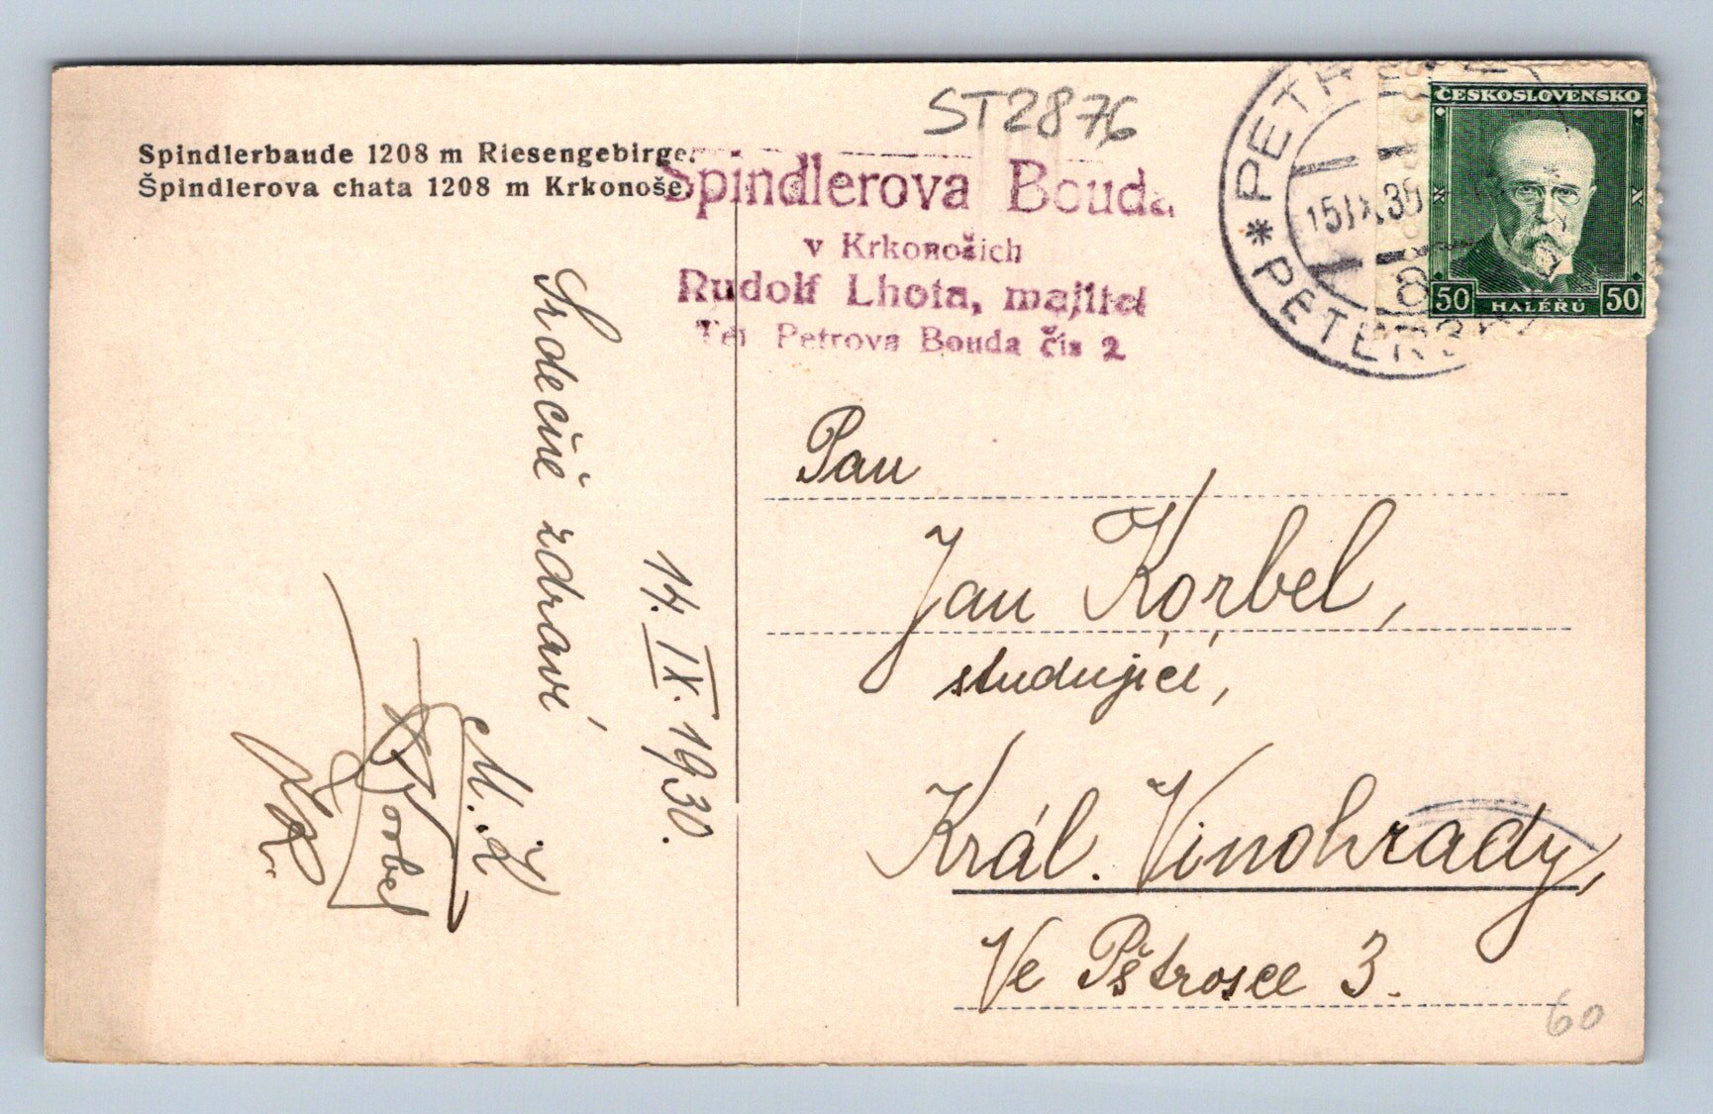 ST2876
Spindlerbaude 1208 m Riesengebirge.
Špindlerova chata 1208 m Krkonoše.
Spindlerova Bouda
v Krkonošich
Rudolf Lhota, majitel
Tel Petrova Bouda čis 2
15.IX.30
ČESKOSLOVENSKO
50 HALÉŘŮ 50
14. IX. 1930.
Srdečné zdraví
M. K.
Korbel
Pan
Jan Korbel,
studující,
Král. Vinohrady,
Ve Pštrosce 3.
60